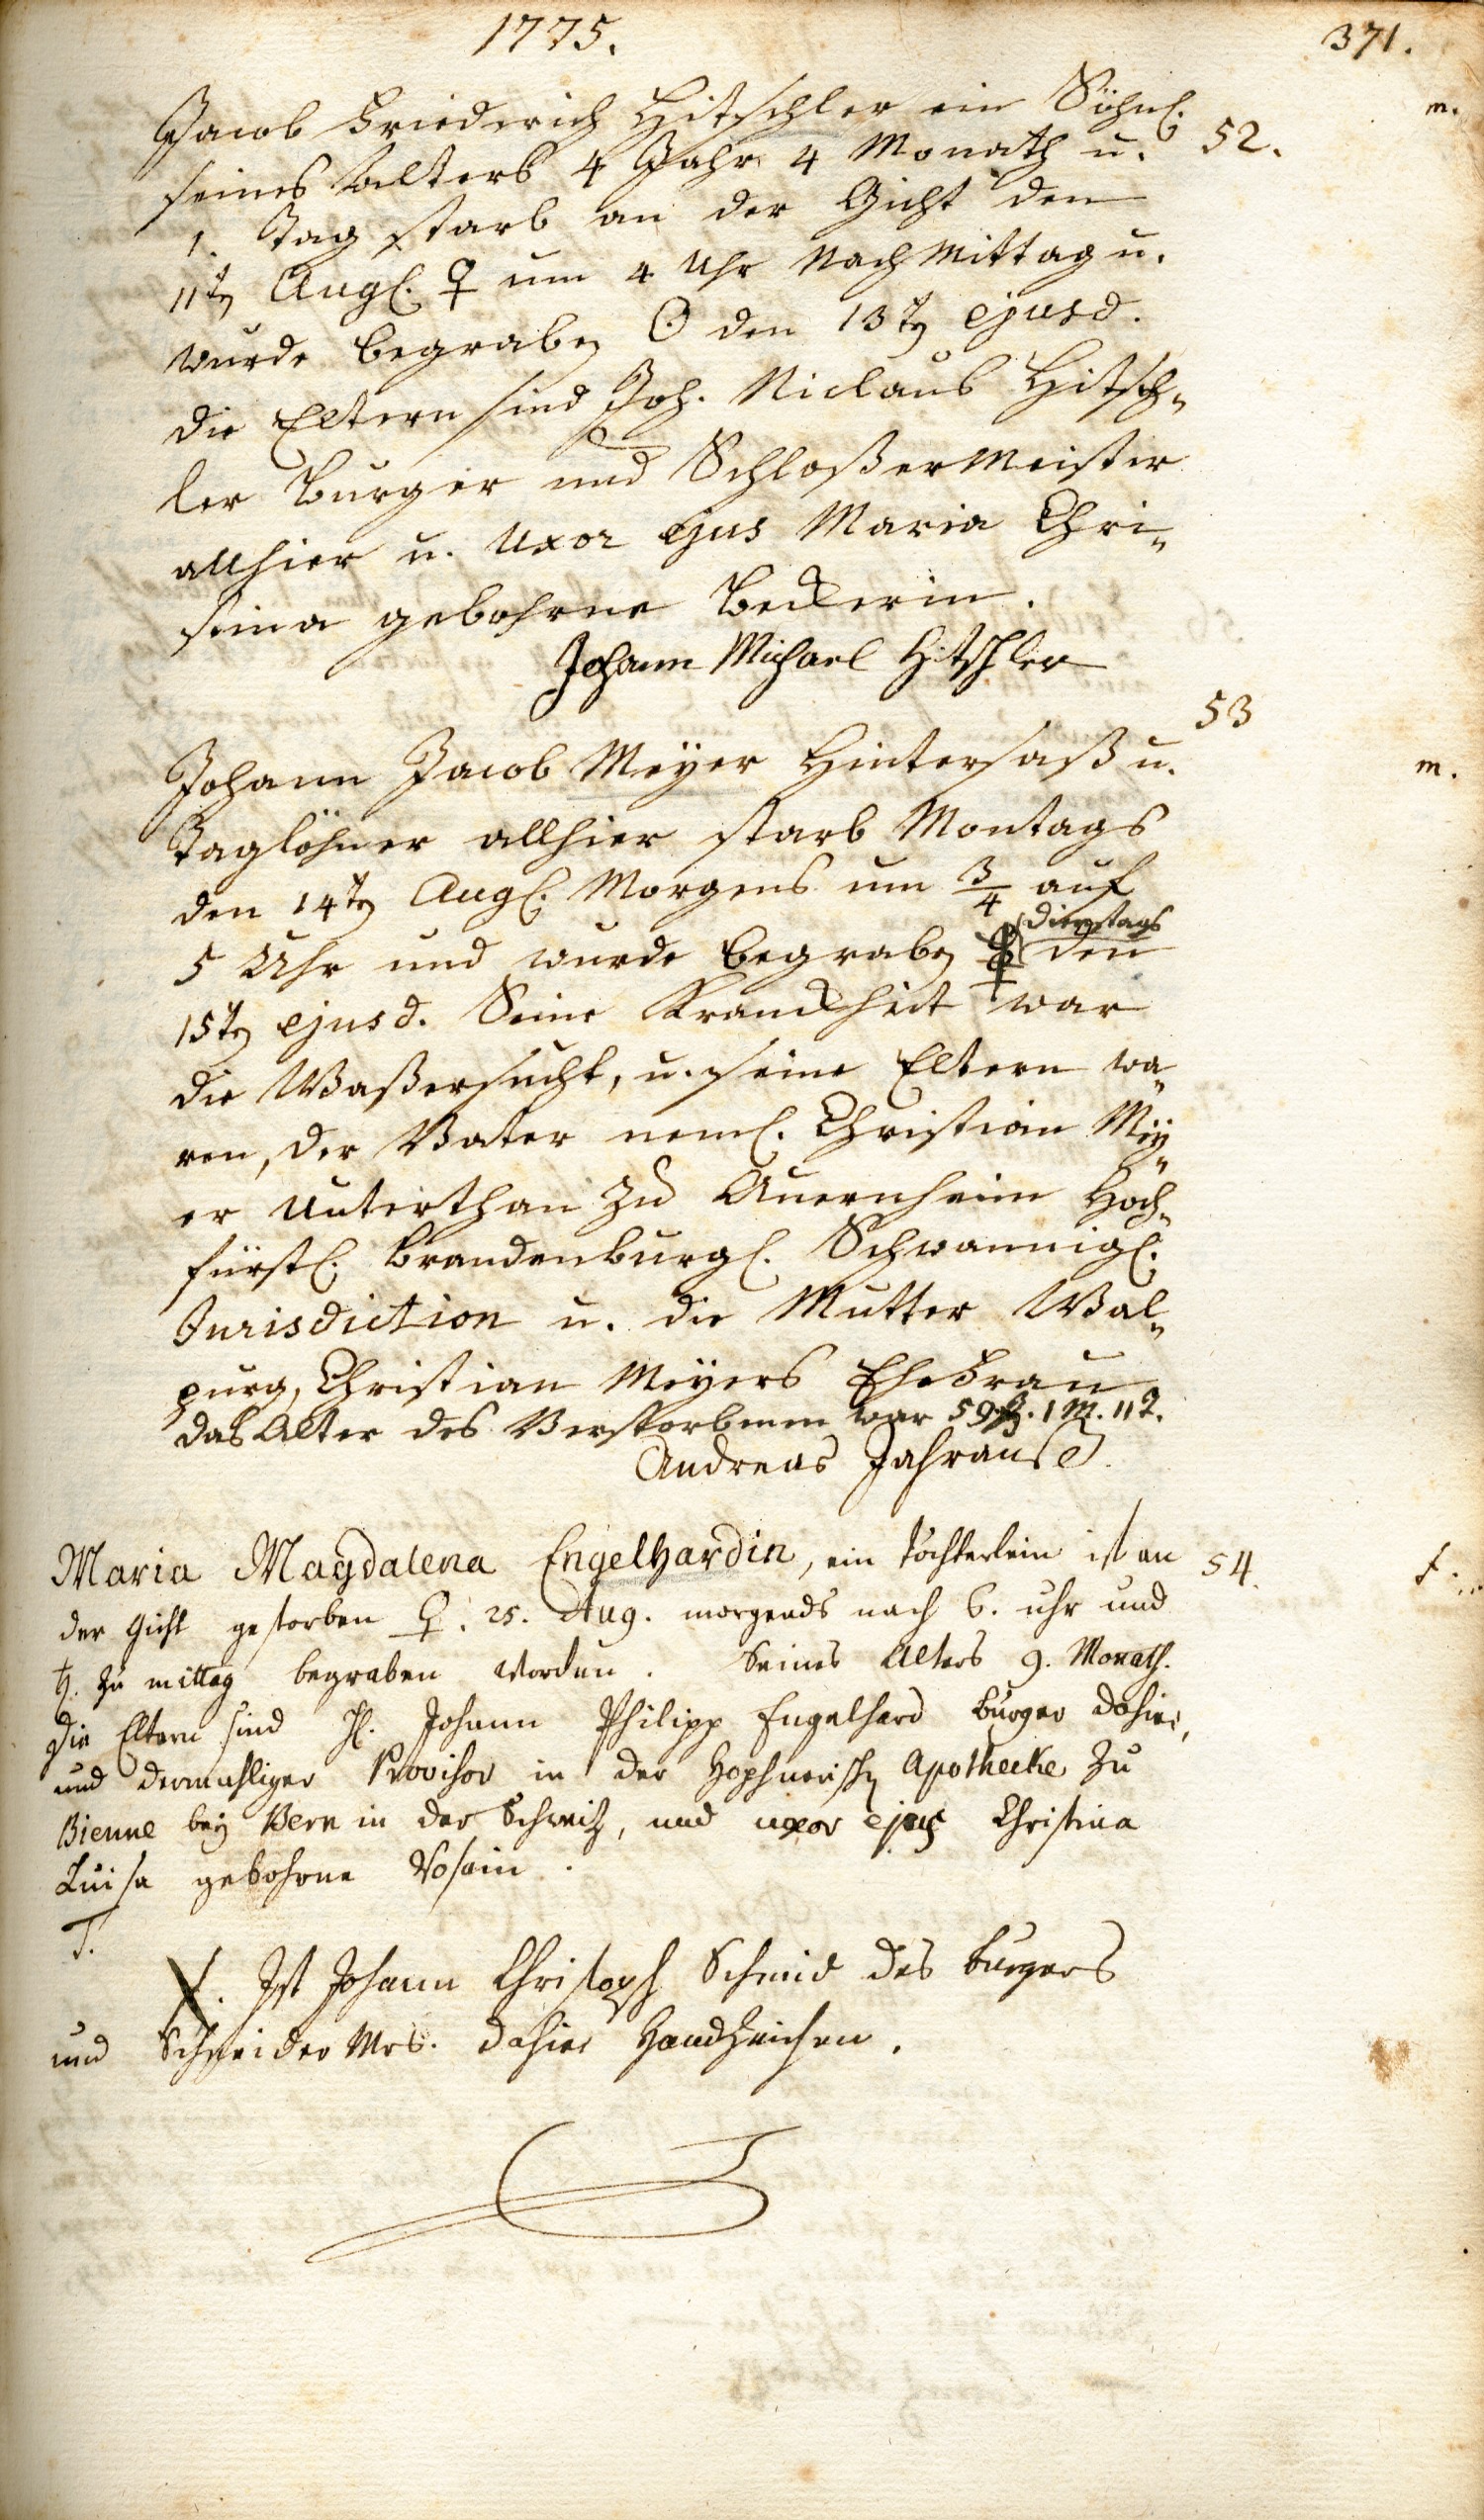 1775.
371.
Jacob Friederich Hitschler ein Söhnl.
52.
m.
seines Alters 4 Jahr 4 Monath u.
1. Tag starb an der Gicht den
11ten Augl. ♀ um 4 Uhr Nach Mittag u.
wurde begraben ☉ den 13ten ejusd.
die Eltern sind Joh. Niclaus Hitsch„
ler Burger und Schloßer Meister
allhier u. Uxor ejus Maria Chri„
stina gebohrne Beckerin.
Johann Michael Hitschler
53
Johann Jacob Meyer Hintersaß u.
m.
Taglöhner allhier starb Montags
den 14ten Augl. Morgens um 3/4 auf
dienstags
5 Uhr und wurde begraben den
15ten ejusd. Seine Kranckheit war
die Waßersucht, u. seine Eltern wa„
ren, der Vater neml. Christian Mey„
er Unterthan zu Auernheim Hoch„
fürstl. Brandenburgl. Schwaningl.
Jurisdiction u. die Mutter Wal„
purg, Christian Meyers Ehefrau
das Alter des Verstorbenen war 59 J. 1 M. 11 T.
Andreas Jahrauß
Maria Magdalena Engelhardin, ein Töchterlein ist an
54.
f.
der Gicht gestorben ♀. 25. Aug. morgends nach 6. uhr und
♄. zu mittag begraben worden. Seines Alters 9. Monath.
Die Eltern sind H. Johann Philipp Engelhard burger dahier,
und dermahliger Provisor in der Apothecke zu
Bienne bey Bern in der Schweitz, und uxor ejus Christina
Luisa gebohrne
T.
X. Ist Johann Christoph Schmid des burgers
und Schneider Mrs. dahier Handzeichen.